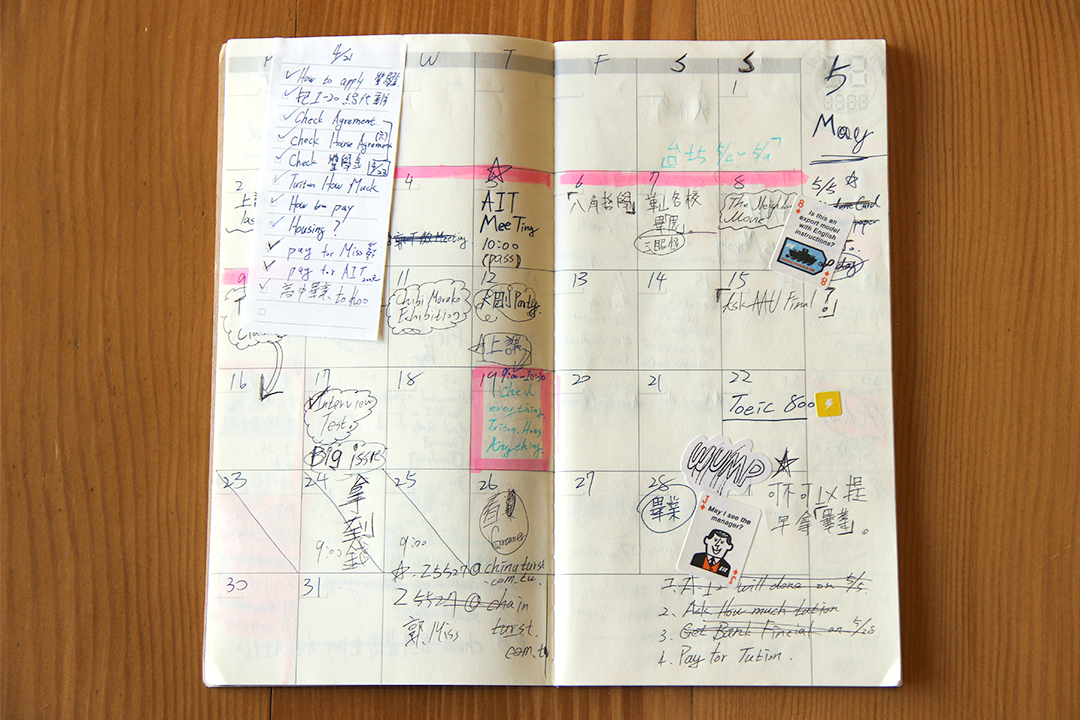 4/21
How to apply
把I-20給代辦
Check Agrement
check House Agrement
Check 獎學金 4/22
Tuition How Much
How to pay
Housing?
pay for Miss
pay for AIT
高中畢業 to Hoo
W
T
F
S
S
5
May
1
5/5
2
4
5
AIT
MeeTing
10:00
(pass)
6
「八角哲學」
7
各校
畢展」
8
The
Movie
Is this an
export model
with English
instructions?
8
8
9
11
Chibi Maruko
Exhibition
12
Party.
上課
13
14
15
「Ask Final
16
17
Interview
Test.
Big issues
18
19
9:00~10:30
Check
everything.
Tution. Hous
Anything.
20
21
22
Toeic 800
23
24
拿到錢
9:00
25
9:00
26
看
27
28
畢業
WUMP
可不可以提
早拿「畢業」。
J
May I see the
manager?
J
30
31
Z5527@chinaturst
.com.tw
Z5527@chain
turst.
com.t
郭.Miss
1. will done on 5/5.
2. Ask How much tution
3. Get Bank Fincial on 5/28
4. Pay for Tution.